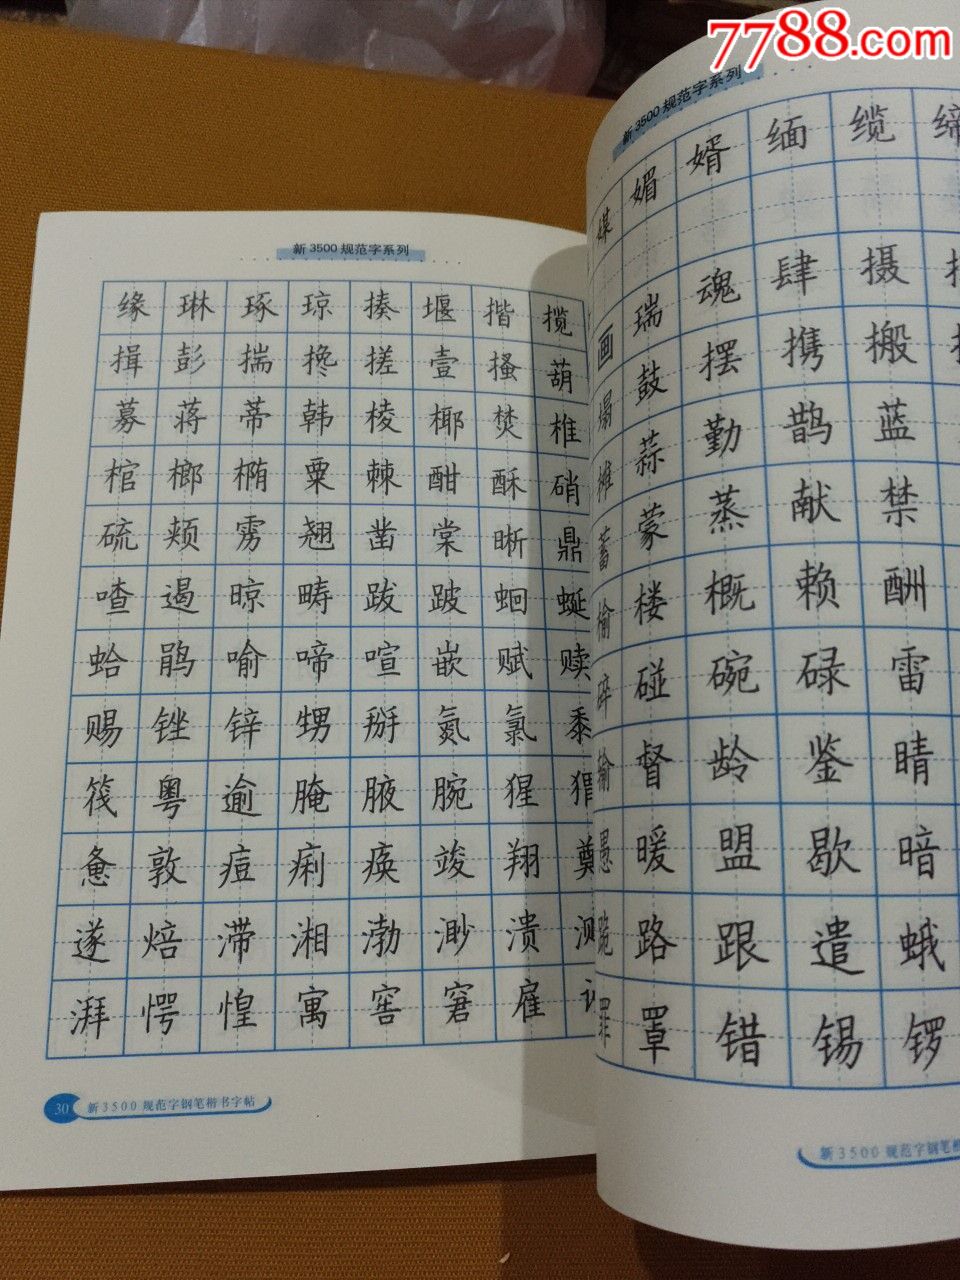 7788.com
新3500规范字系列
缘琳琢琼揍堰揩揽
揖彭揣搀搓壹搔葫
募蒋蒂韩棱椰焚椎
棺榔椭粟棘酣酥硝
硫颊雳翘凿棠晰鼎
喳遏晾畴跋跛蛔蜒
蛤鹃喻啼喧嵌赋赎
赐锉锌甥掰氮氯黍
筏粤逾腌腋腕猩猬
惫敦痘痢痪竣翔奠
遂焙滞湘渤渺溃
湃愕惶寓窖窘雇
30 新3500规范字钢笔楷书字帖
新3500规范字系列
媒媚婿缅缆缔
画瑞魂肆摄
塌鼓摆携搬
摊蒜勤鹊蓝
蓄蒙蒸献禁
榆楼概赖酬
碎碰碗碌雷
输督龄鉴睛
愚暖盟歇暗
跪路跟遣蛾
罪罩错锡锣
新3500规范字钢笔楷